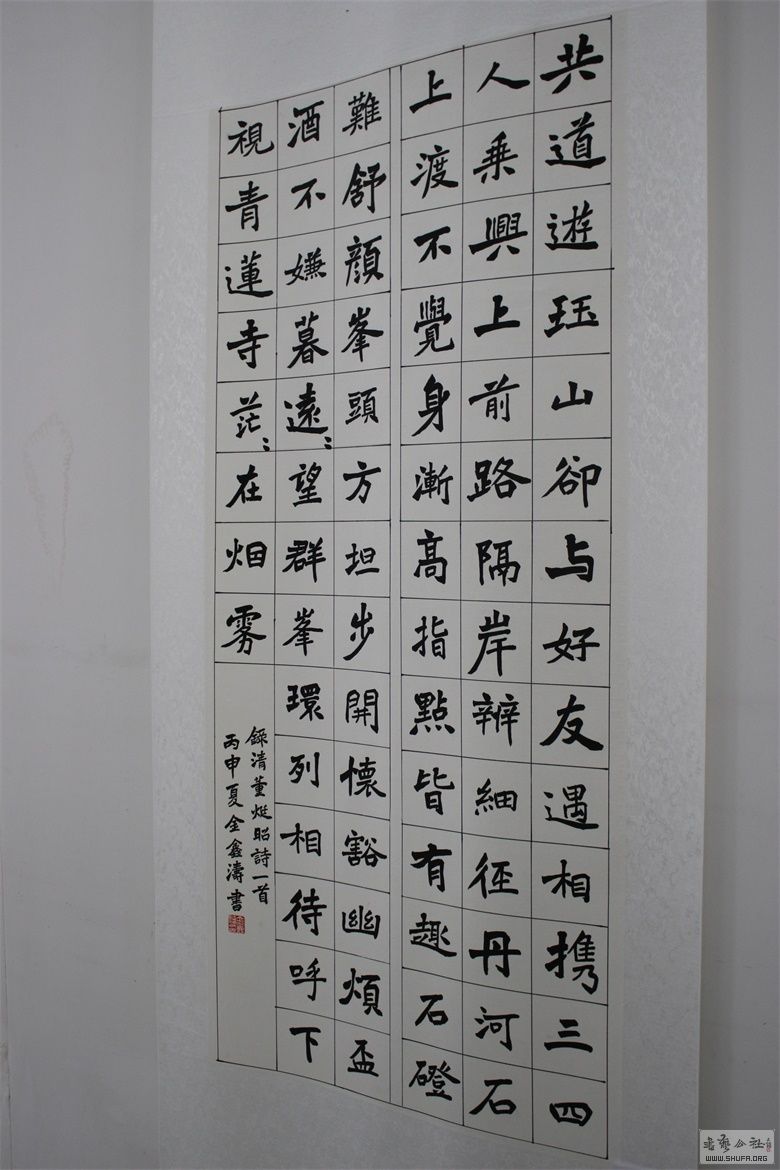 共道遊珏山卻与好友遇相携三四
人乘興上前路隔岸辨細徑丹河石
上渡不覺身漸高指點皆有趣石磴
難舒顔峯頭方坦步開懷豁幽煩盃
酒不嫌暮遠〻望群峯環列相待呼下
視青蓮寺茫〻在烟雾
錄清董烻昭詩一首
丙申夏全鑫濤書
WWW.SHUFA.ORG